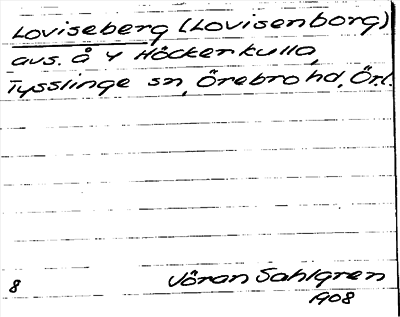 Loviseberg (Lovisenborg)
avs. å 4 Höckerkulla,
Tysslinge sn, Örebro hd, Örl.
8 Jöran Sahlgren
1908